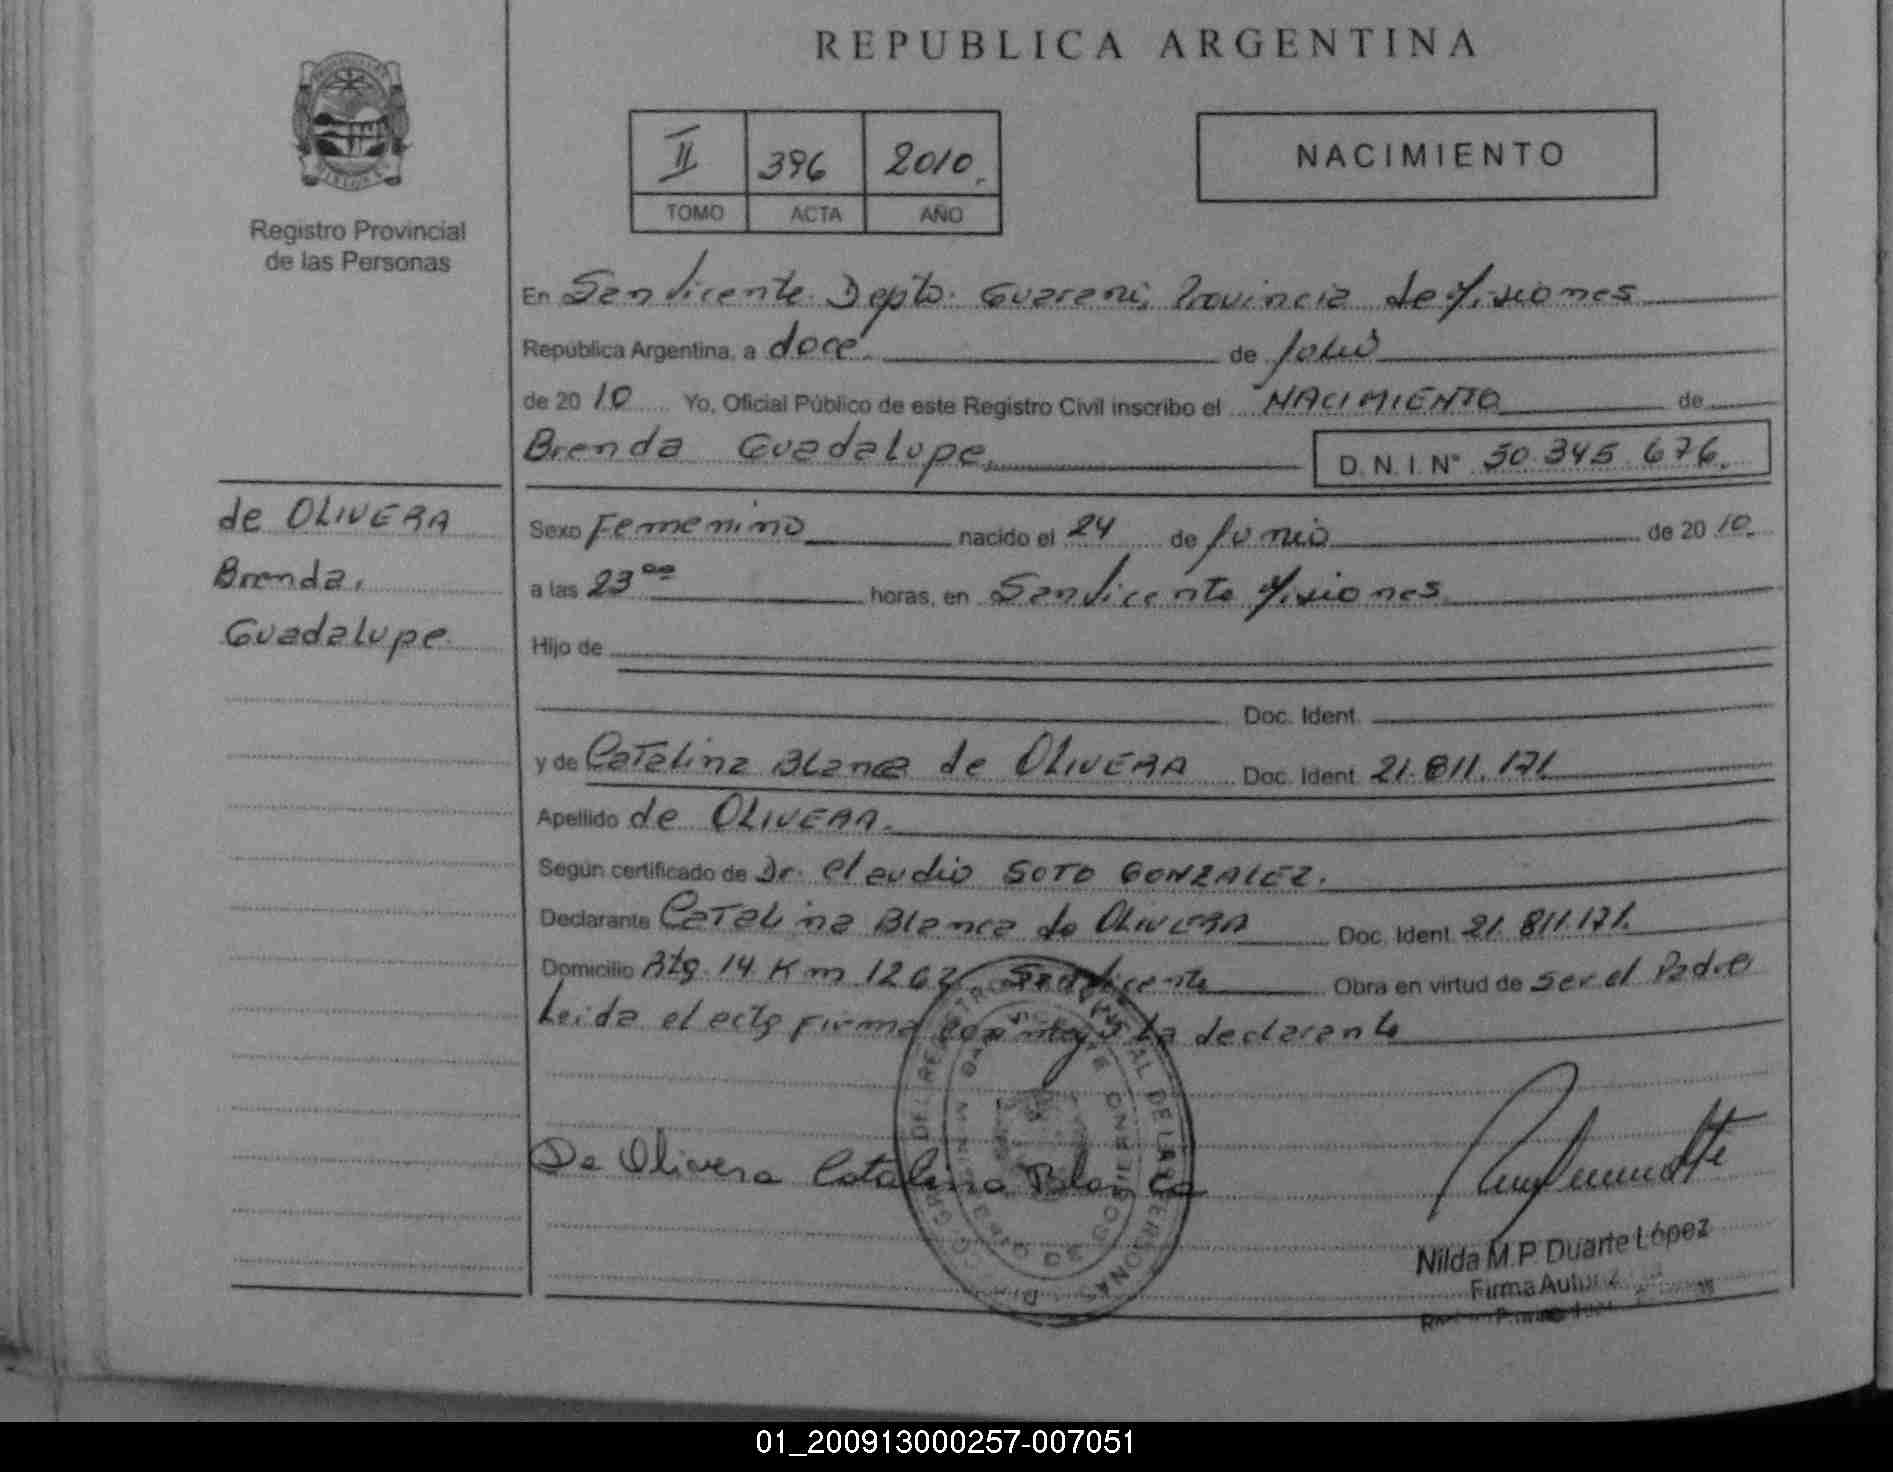 REPUBLICA ARGENTINA
II 396 2010.
TOMO ACTA AÑO
NACIMIENTO
Registro Provincial
de las Personas
En San Vicente Depto. Guarani, Provincia de Misiones
República Argentina, a doce. de Julio
de 2010 Yo, Oficial Público de este Registro Civil inscribo el NACIMIENTO de
Brenda Guadalupe. D.N.I. N° 50.345.676.
de OLIVERA
Brenda,
Guadalupe
Sexo Femenino nacido el 24 de Junio de 2010.
a las 23 oo horas, en San Vicente Misiones
Hijo de
Doc. Ident.
y de Catalina Blanca de OLIVERA Doc. Ident. 21.811.171
Apellido de OLIVERA.
Según certificado de Dr. Claudio SOTO GONZALEZ.
Declarante Catalina Blanca de OLIVERA Doc. Ident. 21.811.171.
Domicilio Rta. 14 Km 1262 San Vicente Obra en virtud de ser el Padre
Leida el acta firma conmigo la declarante
De Olivera Catalina Blanca
Nilda M.P. Duarte López
Firma
01_200913000257-007051